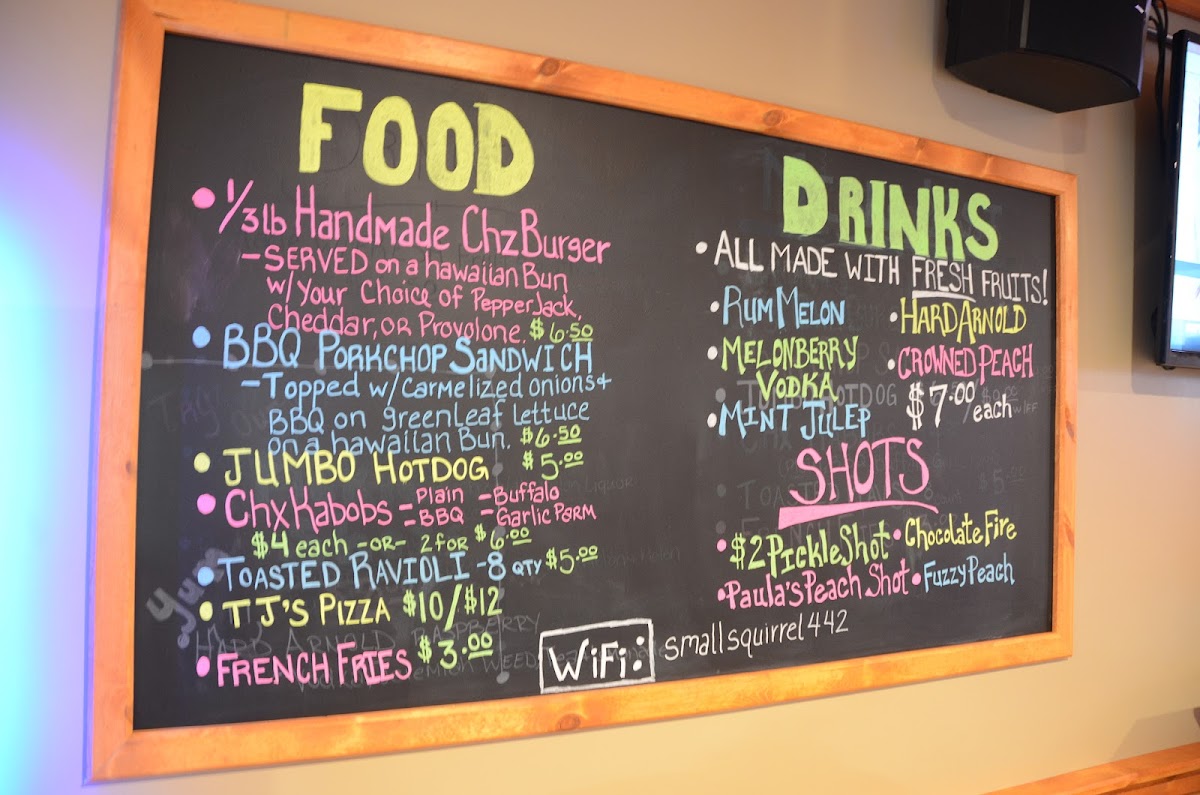 FOOD
• 1/3 lb Handmade ChzBurger
- SERVED on a hawaiian Bun
w/ Your Choice of PepperJack,
Cheddar, OR Provolone. $6.50
• BBQ PORKCHOP SANDWICH
- Topped w/ Carmelized onions+
BBQ on greenleaf lettuce
on a hawaiian Bun. $6.50
• JUMBO HOTDOG $5.00
• Chx Kabobs - Plain - Buffalo
- BBQ - Garlic Parm
$4 each -OR- 2 for $6.00
• TOASTED RAVIOLI - 8 QTY $5.00
• TJ'S PIZZA $10/$12
• FRENCH FRIES $3.00
DRINKS
• ALL MADE WITH FRESH FRUITS!
• RUM MELON
• MELONBERRY
VODKA
• MINT JULEP
• HARD ARNOLD
• CROWNED PEACH
$7.00 each
SHOTS
• $2 Pickle Shot • Chocolate Fire
• Paula's Peach Shot • Fuzzy Peach
WiFi: smallsquirrel442
Yum
HARD ARNOLD RASPBERRY